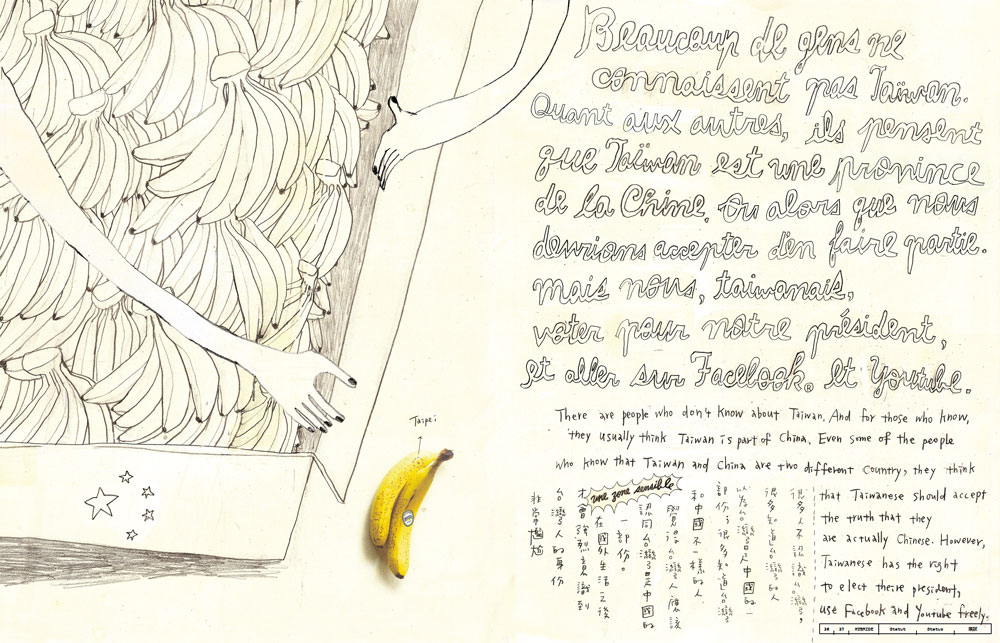 Beaucoup de gens ne
connaissent pas Taïwan.
Quant aux autres, ils pensent
que Taïwan est une province
de la Chine. Ou alors que nous
devrions accepter d'en faire partie.
mais nous, taiwanais,
voter pour notre président,
et aller sur Facebook. Et Youtube.
Taipei
There are people who don't know about Taiwan. And for those who know,
they usually think Taiwan is part of China. Even some of the people
who know that Taiwan and China are two different country, they think
that Taiwanese should accept
the truth that they
are actually Chinese. However,
Taiwanese has the right
to elect there president,
use Facebook and Youtube freely.
une zone sensible
很多人不認識台灣，
很多知道台灣的人
以為台灣是中國的一
部份，很多知道台灣
和中國不一樣的人
覺得台灣人應該
認同台灣是中國的
一部份。
在國外生活之後
才會強烈意識到
台灣人的身份
非常尷尬
36 37 HYBRIDE Statut Status